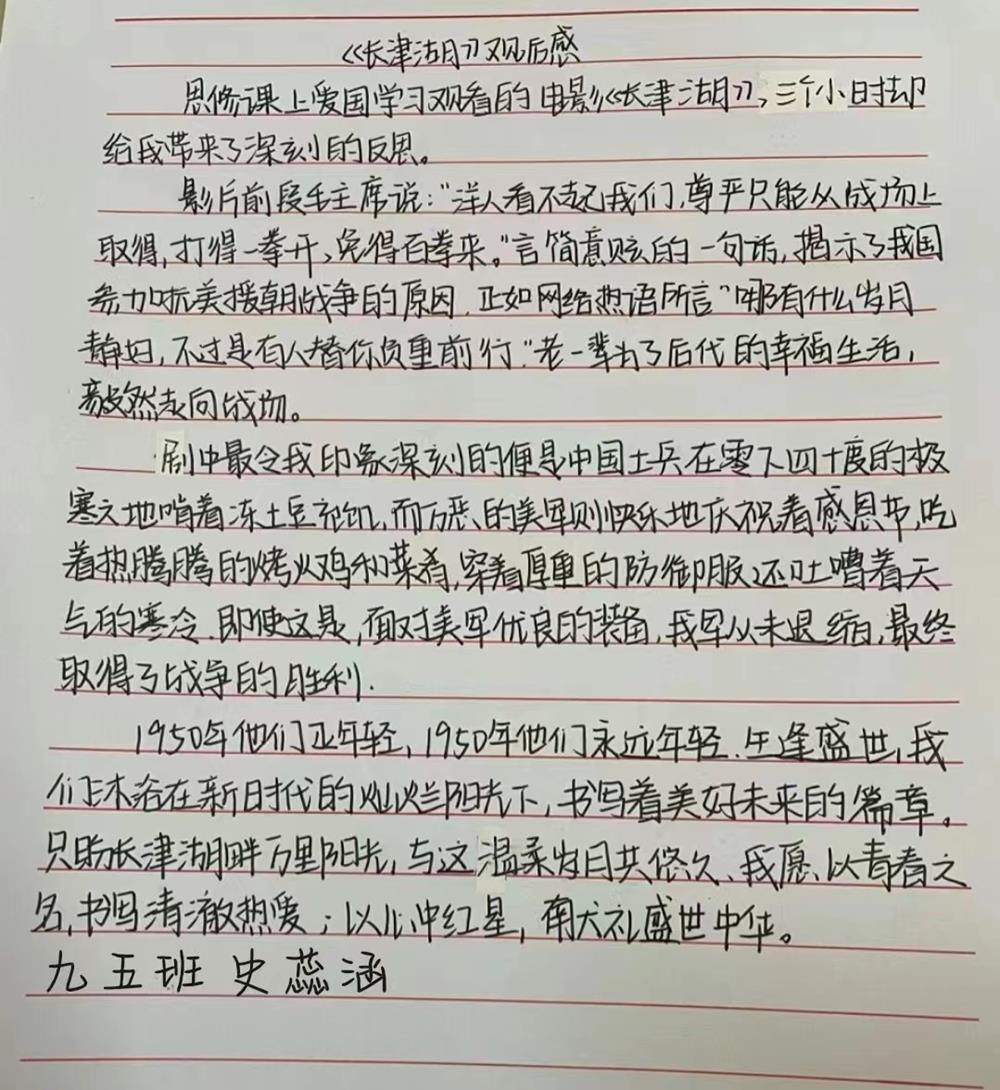 《长津湖》观后感
思修课上爱国学习观看的电影《长津湖》,三个小时却
给我带来了深刻的反思。
影片前段毛主席说:"洋人看不起我们,尊严只能从战场上
取得,打得一拳开,免得百拳来。"言简意赅的一句话,揭示了我国
参加抗美援朝战争的原因.正如网络热语所言"哪有什么岁月
静好,不过是有人替你负重前行."老一辈为了后代的幸福生活,
毅然走向战场。
剧中最令我印象深刻的便是中国士兵在零下四十度的极
寒之地啃着冻土豆充饥,而万恶的美军则快乐地庆祝着感恩节,吃
着热腾腾的烤火鸡和菜肴,穿着厚重的防御服还吐嘈着天
气的寒冷.即使这是,面对美军优良的装备,我军从未退缩,最终
取得了战争的胜利.
1950年他们正年轻,1950年他们永远年轻.生逢盛世,我
们沐浴在新时代的灿烂阳光下,书写着美好未来的篇章。
只盼长津湖畔万里阳光,与这温柔岁月共悠久、我愿以青春之
名,书写清澈热爱;以心中红星,献礼盛世中华。
九五班 史蕊涵